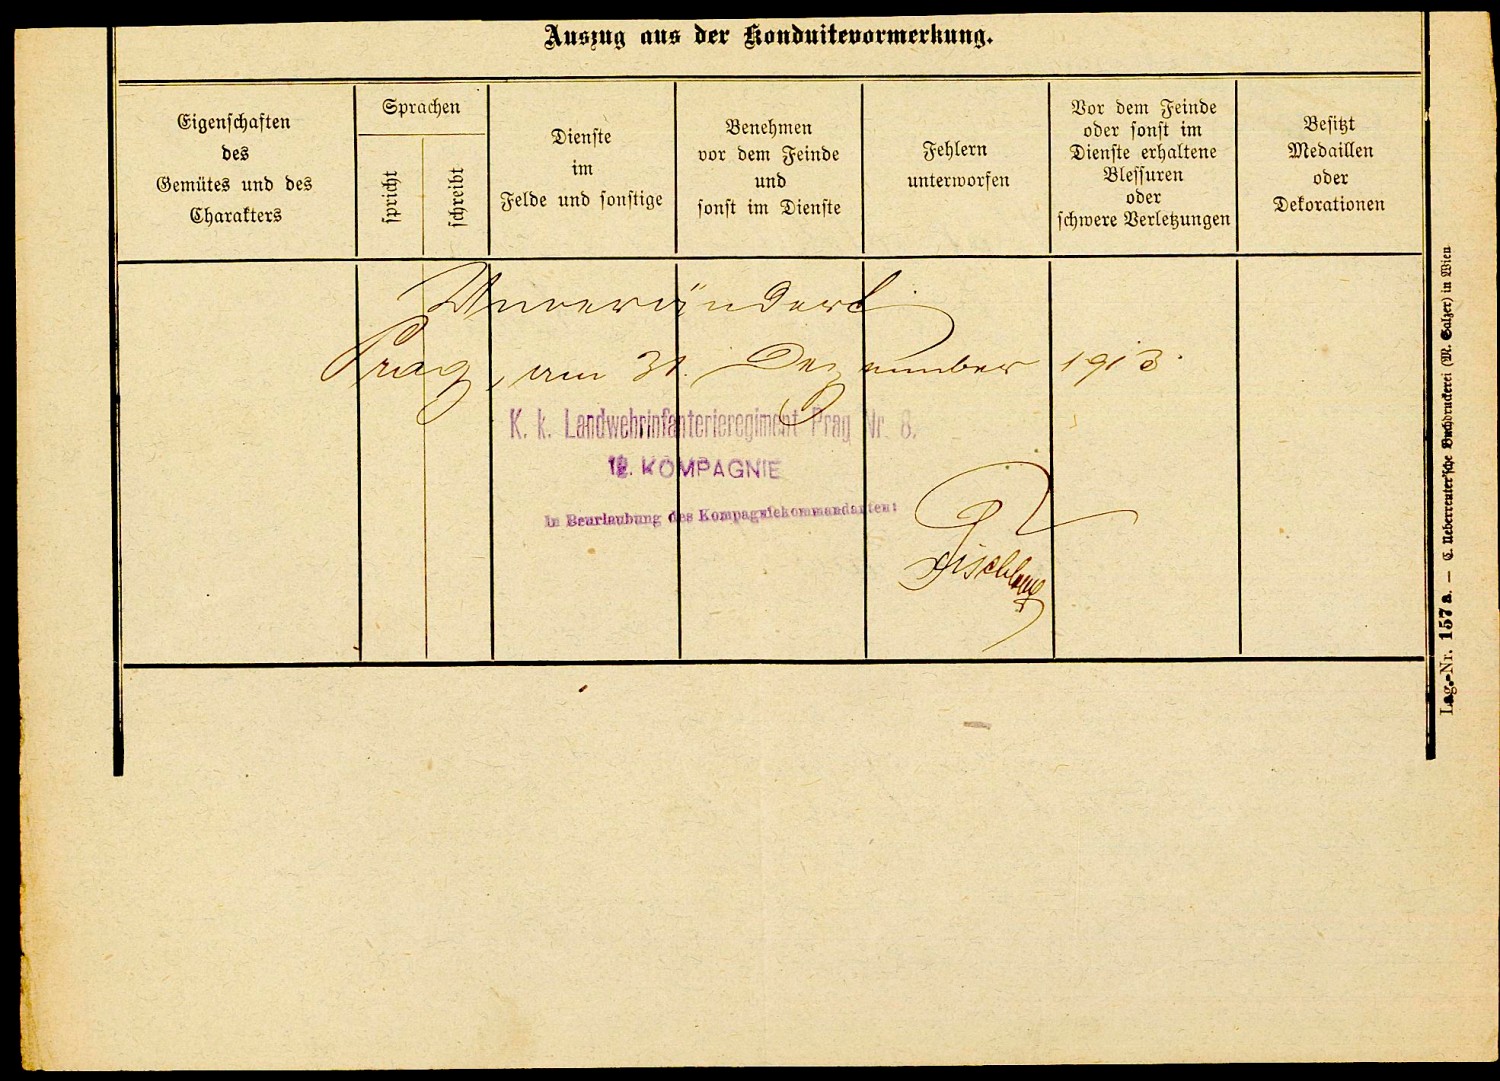 Auszug aus der Konduitevormerkung.
Eigenschaften
des
Gemütes und des
Charakters
Sprachen
spricht
schreibt
Dienste
im
Felde und sonstige
Benehmen
vor dem Feinde
und
sonst im Dienste
Fehlern
unterworfen
Vor dem Feinde
oder sonst im
Dienste erhaltene
Blessuren
oder
schwere Verletzungen
Besitzt
Medaillen
oder
Dekorationen
Unverändert
Prag, am 31. Dezember 1913.
K. k. Landwehrinfanterieregiment Prag Nr. 8.
KOMPAGNIE
In Beurlaubung des Kompagniekommandanten:
Lag.-Nr. 157 a. — C. Ueberreuter'sche Buchdruckerei (M. Salzer) in Wien